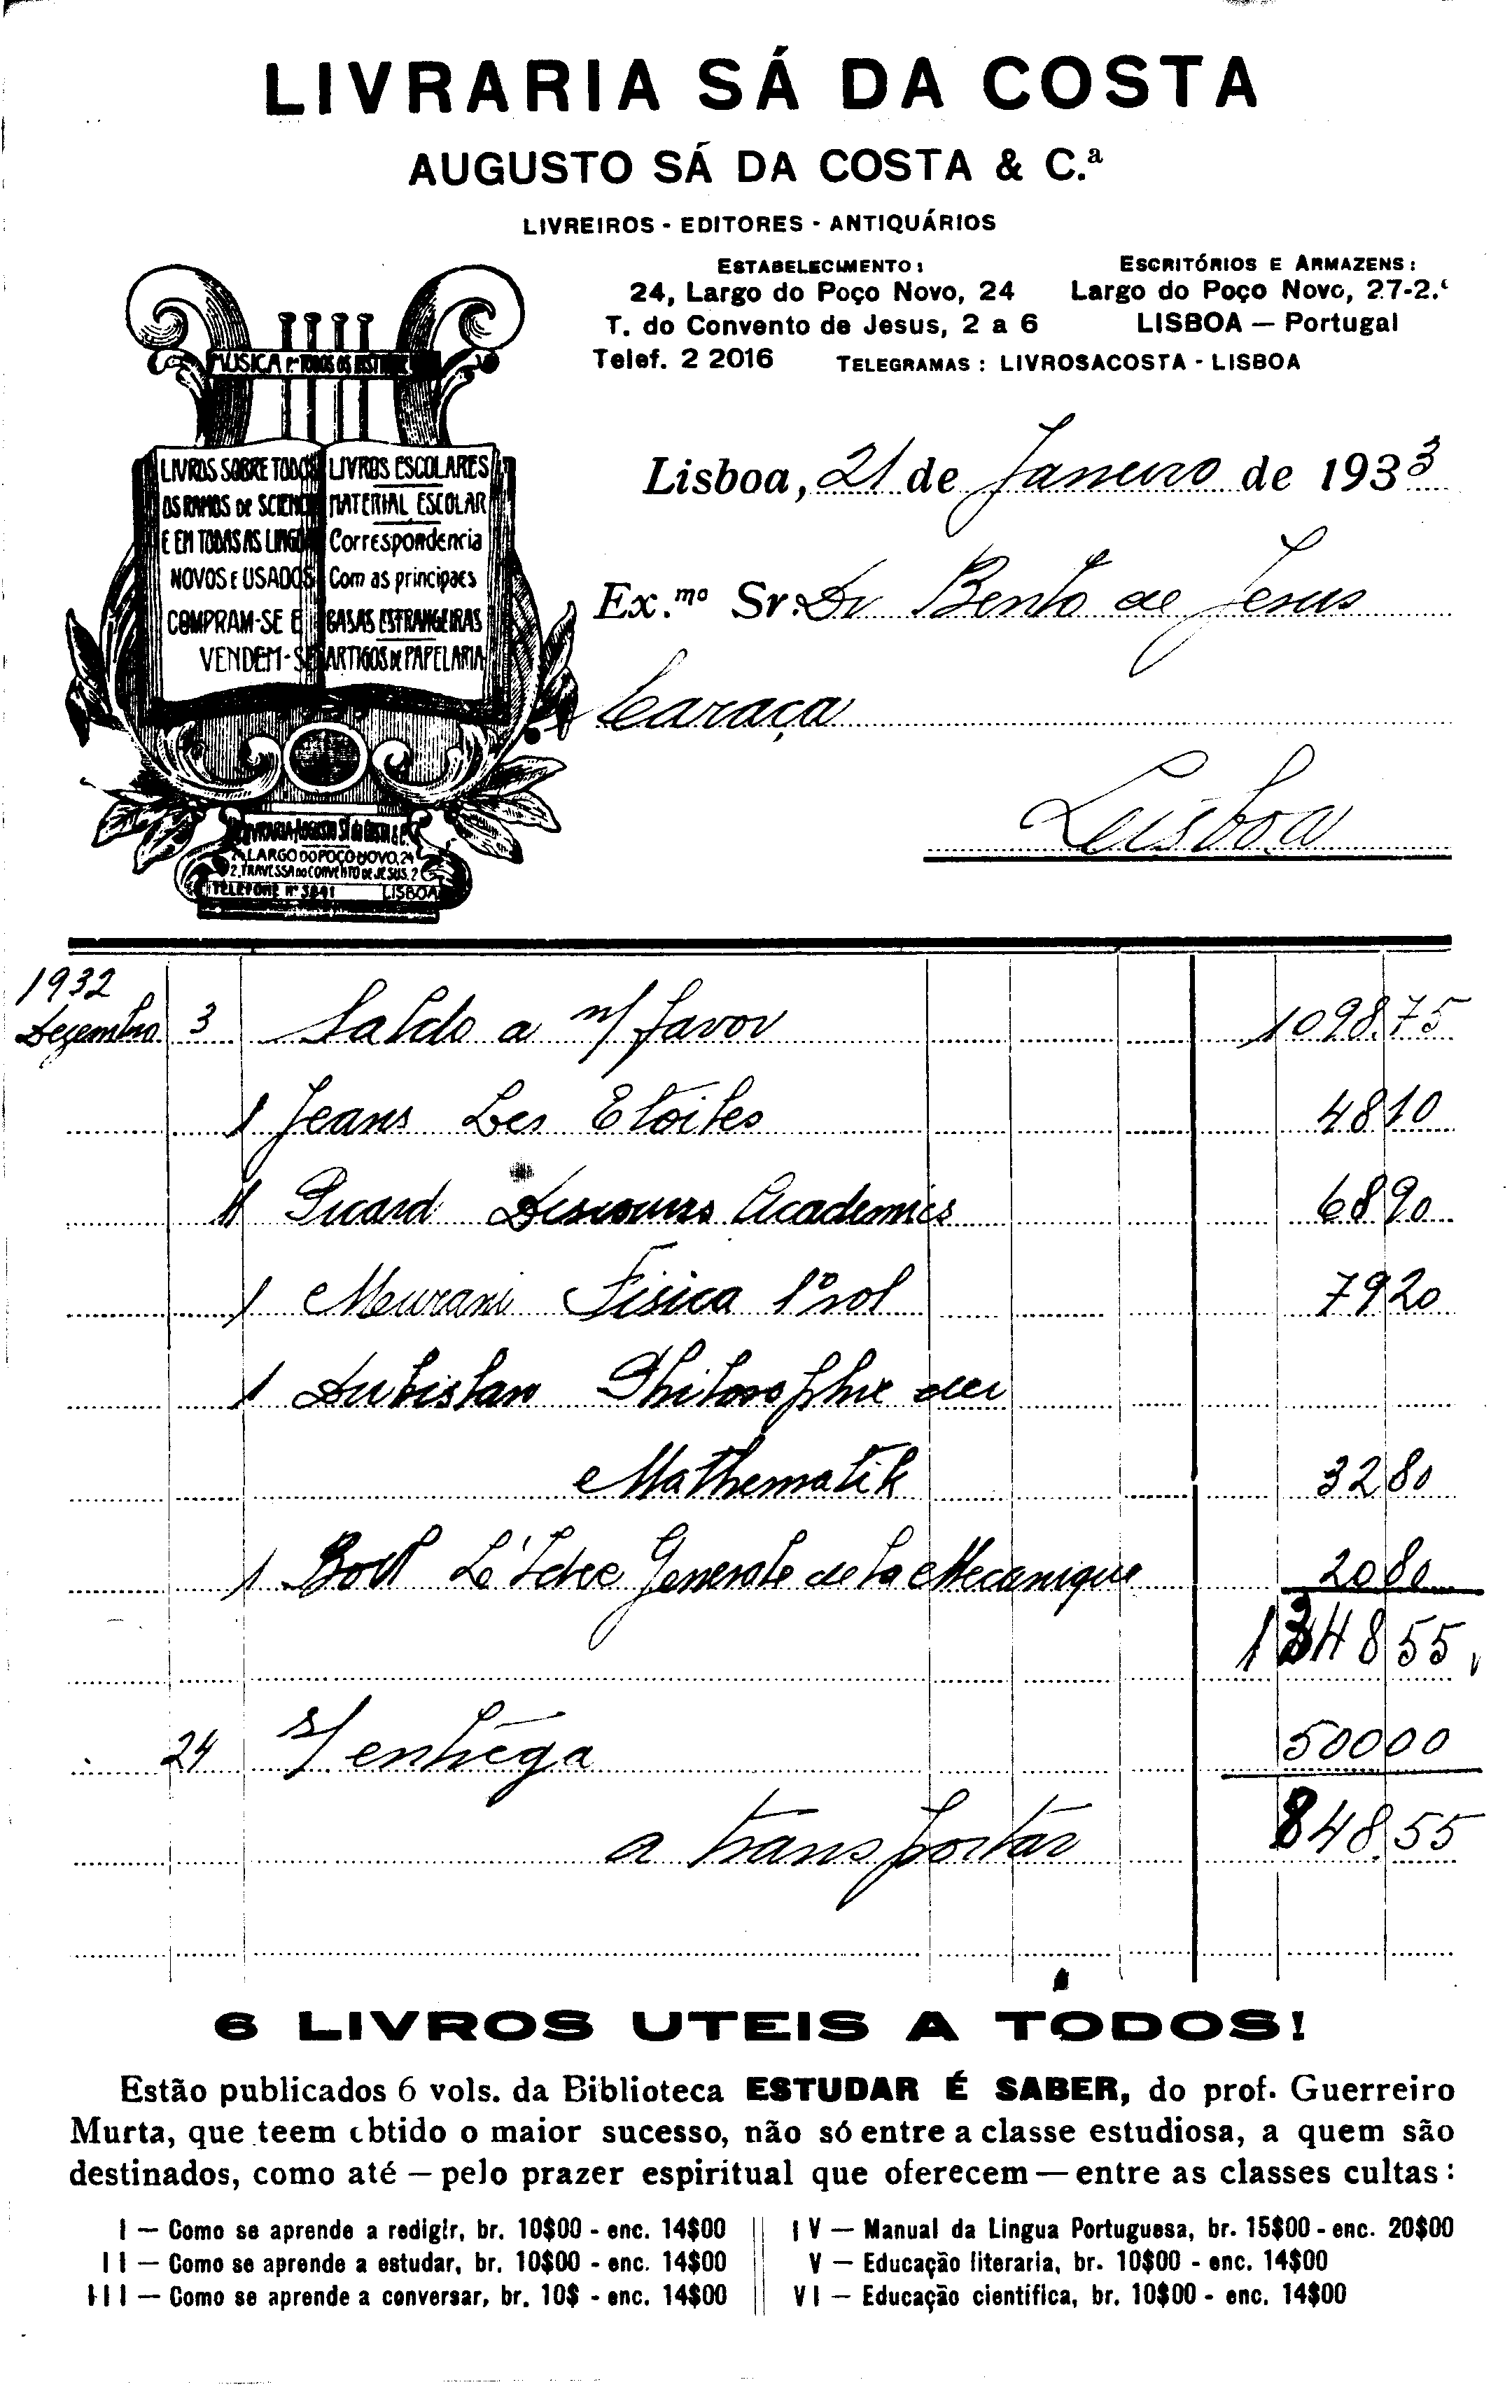 LIVRARIA SÁ DA COSTA
AUGUSTO SÁ DA COSTA & C.ª
LIVREIROS - EDITORES - ANTIQUÁRIOS
ESTABELECIMENTO:
24, Largo do Poço Novo, 24
T. do Convento de Jesus, 2 a 6
Telef. 2 2016
ESCRITÓRIOS E ARMAZENS:
Largo do Poço Novo, 27-2.º
LISBOA — Portugal
TELEGRAMAS: LIVROSACOSTA - LISBOA
MUSICA
LIVROS SOBRE TODOS
OS RAMOS DE SCIENC
E EM TODAS AS LINGO
NOVOS E USADOS
COMPRAM-SE E
VENDEM-SE
LIVROS ESCOLARES
MATERIAL ESCOLAR
Correspondencia
Com as principaes
CASAS ESTRANGEIRAS
ARTIGOS DE PAPELARIA
LARGO DO POÇO NOVO, 24
2, TRAVESSA DO CONVENTO DE JESUS, 2
TELEFONE Nº LISBOA
Lisboa, 21 de Janeiro de 1933
Ex.mo Sr. Dr Bento de Jesus
Caraça
Lisboa
1932
Dezembro 3 Saldo a n/ favor 1098.75
1 Jeans Les Etoiles 48 10
1 Picard Discours Academics 68 90
1 Murani Fisica 1º vol 79 20
1 Dubislav Philosophie der
Mathematik 32 80
1 Boul L'Idee Generale de la Mecanique 20 80
1348 55
24 s/ entrega 500 00
a transportar 848.55
6 LIVROS UTEIS A TODOS!
Estão publicados 6 vols. da Biblioteca ESTUDAR É SABER, do prof. Guerreiro
Murta, que teem obtido o maior sucesso, não só entre a classe estudiosa, a quem são
destinados, como até — pelo prazer espiritual que oferecem — entre as classes cultas:
I — Como se aprende a redigir, br. 10$00 - enc. 14$00
II — Como se aprende a estudar, br. 10$00 - enc. 14$00
III — Como se aprende a conversar, br. 10$ - enc. 14$00
IV — Manual da Lingua Portuguesa, br. 15$00 - enc. 20$00
V — Educação literaria, br. 10$00 - enc. 14$00
VI — Educação cientifica, br. 10$00 - enc. 14$00